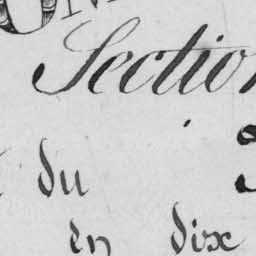 Section
du
en dix